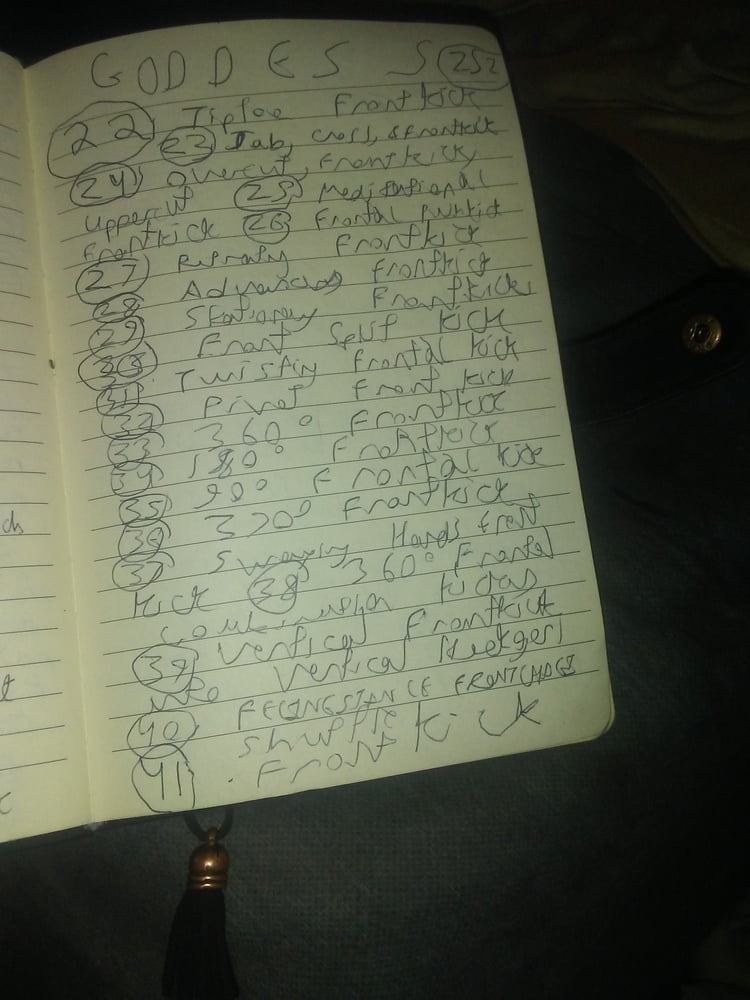 GODDESS 252
22 Frontkick
23 Jab, cross, & frontkick
24 Overcut, Frontkick,
Uppercut 25 Meditational
Frontkick 26 Frontal
27 Frontkick
28 Advancing frontkick
29 Stationary Frontkicks
30 Front Split Kick
31 Twisting frontal kick
32 Pivot Front kick
33 360° Frontkick
34 180° Frontkick
35 90° Frontal kick
36 320° Frontkick
37 Swinging Hands front
kick 38 360° Frontal
Combination kicks
39 Vertical Frontkick
into Vertical
40
shuffle kick
41 Front